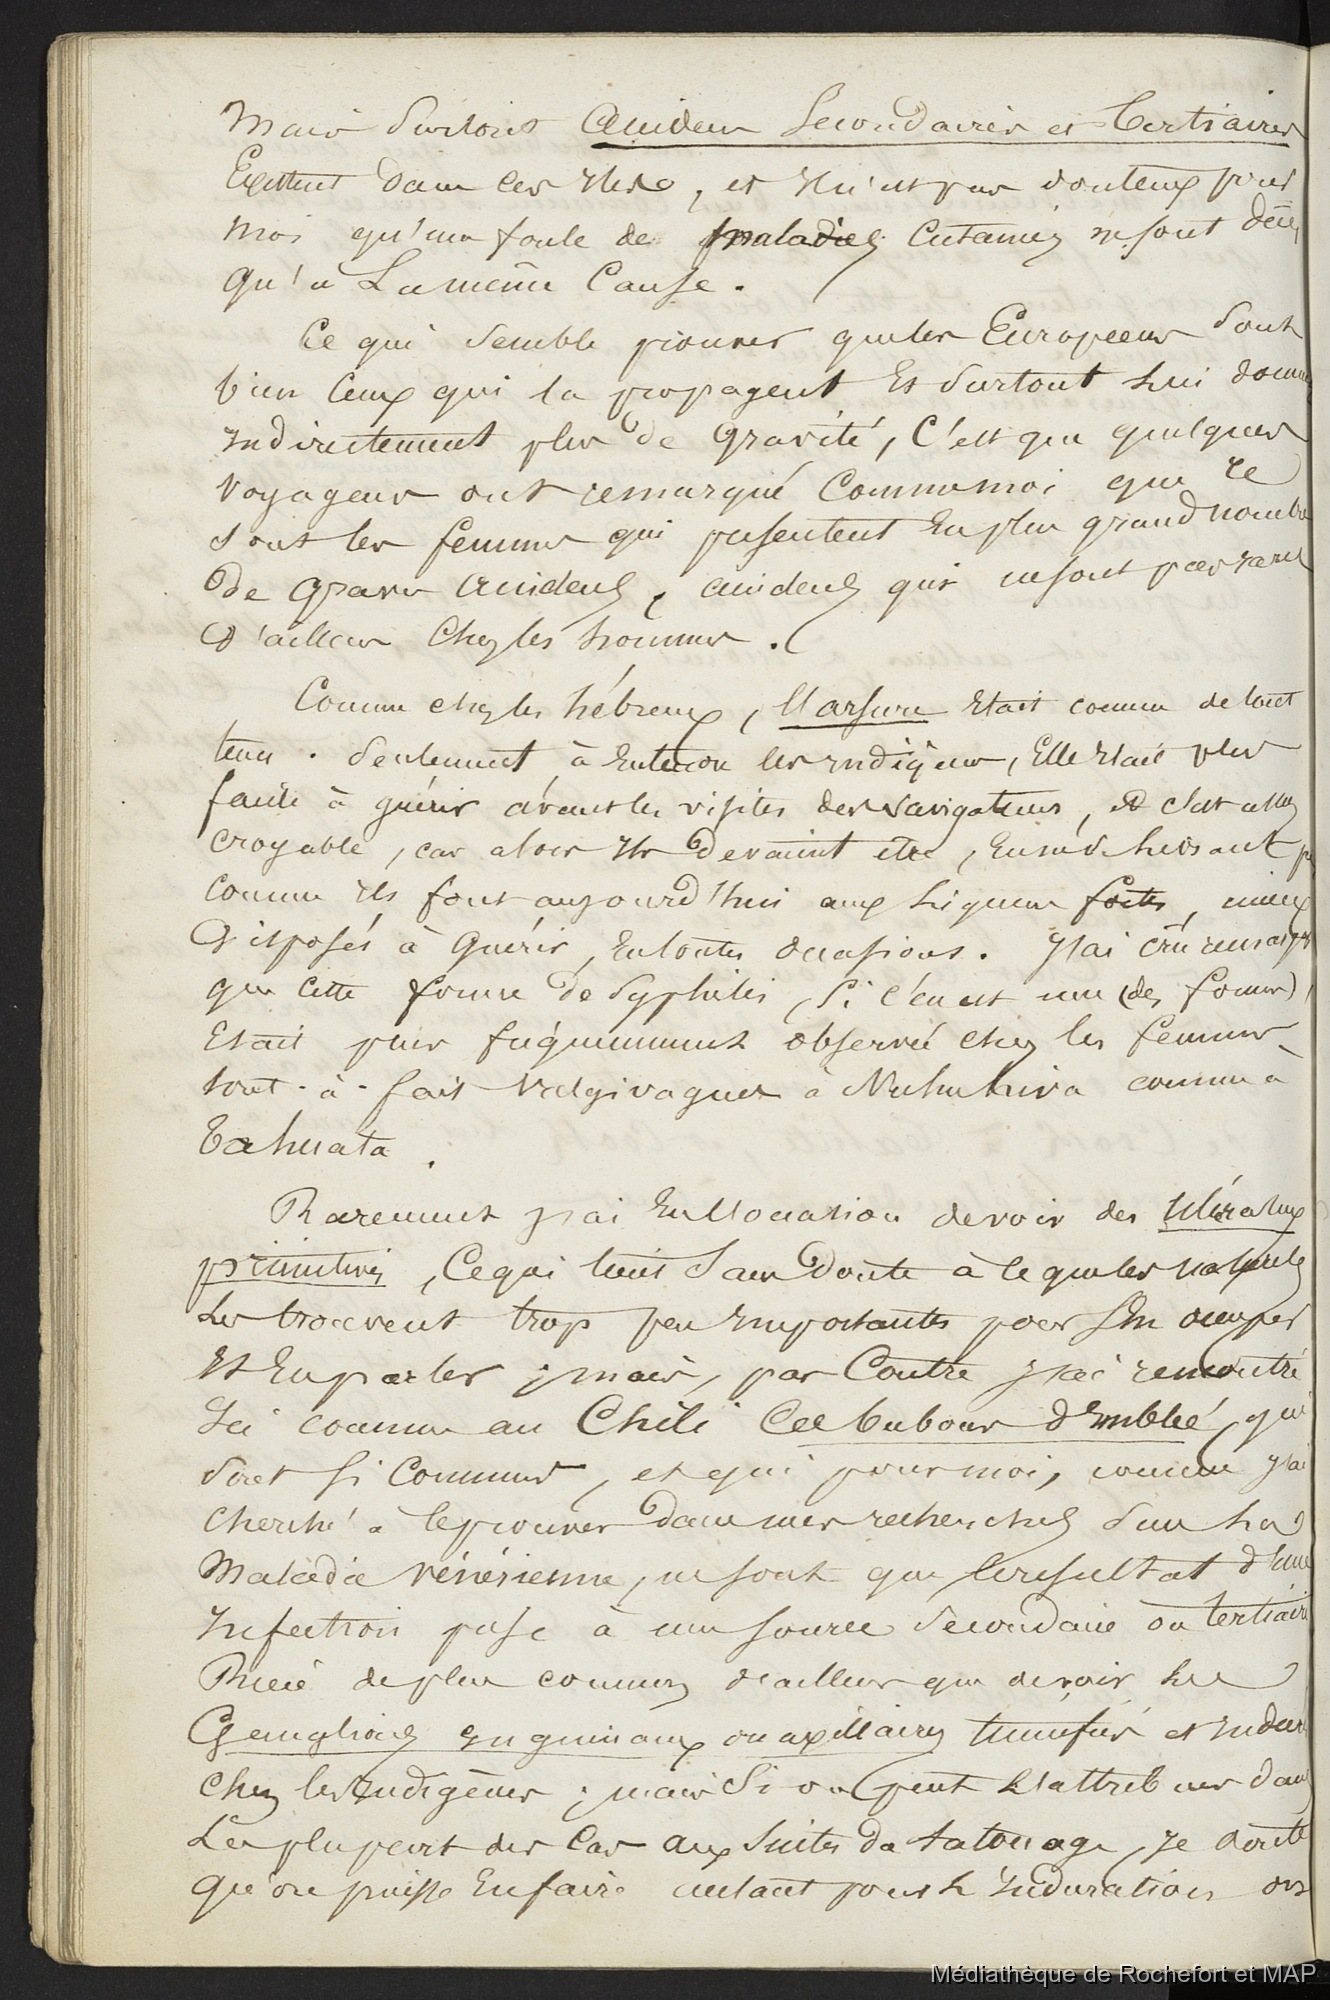 Mais surtout accidens secondaires et tertiaires
Existent dans ces iles, et il n'est pas douteux pour
moi qu'une foule de maladies cutanées ne sont dues
qu'à la même cause.
Ce qui semble prouver que les Européens sont
bien ceux qui la propagent et surtout lui donnent
indirectement plus de gravité, c'est que quelques
voyageurs ont remarqué comme moi que ce
sont les femmes qui présentent en plus grand nombre
de graves accidens, accidens qui ne sont pas rares
d'ailleurs chez les hommes.
Comme chez les hébreux, l'arsure était connue de tout
tems. Seulement, à entendre les indigènes, elle était plus
facile à guérir avant les visites des navigateurs, et c'est assez
croyable, car alors ils devaient être, en ne se livrant pas
comme ils font aujourd'hui aux liqueurs fortes, mieux
disposés à guérir, en toutes occasions. J'ai crû remarquer
que cette forme de syphilis, si c'en est une (des formes),
était plus fréquemment observée chez les femmes
tout-à-fait vulgivagues à Nukuhiva comme à
Tahuata.
Rarement j'ai eu l'occasion de voir des ulcérations
primitives, ce qui tient sans doute à ce que les naturels
les trouvent trop peu importantes pour s'en occuper
et en parler; mais, par contre j'ai rencontré
ici comme au Chili ces bubons d'emblée, qui
sont si communs, et qui pour moi, comme j'ai
cherché à le prouver dans mes recherches sur la
maladie vénérienne, ne sont que le résultat d'une
infection puisée à une source secondaire ou tertiaire
Rien de plus commun d'ailleurs que de voir les
Ganglions inguinaux ou axillaires tuméfiés et indurés
chez les indigènes; mais si on peut l'attribuer dans
la plupart des cas aux suites du tatouage, je doute
qu'on puisse en faire autant pour l'induration des